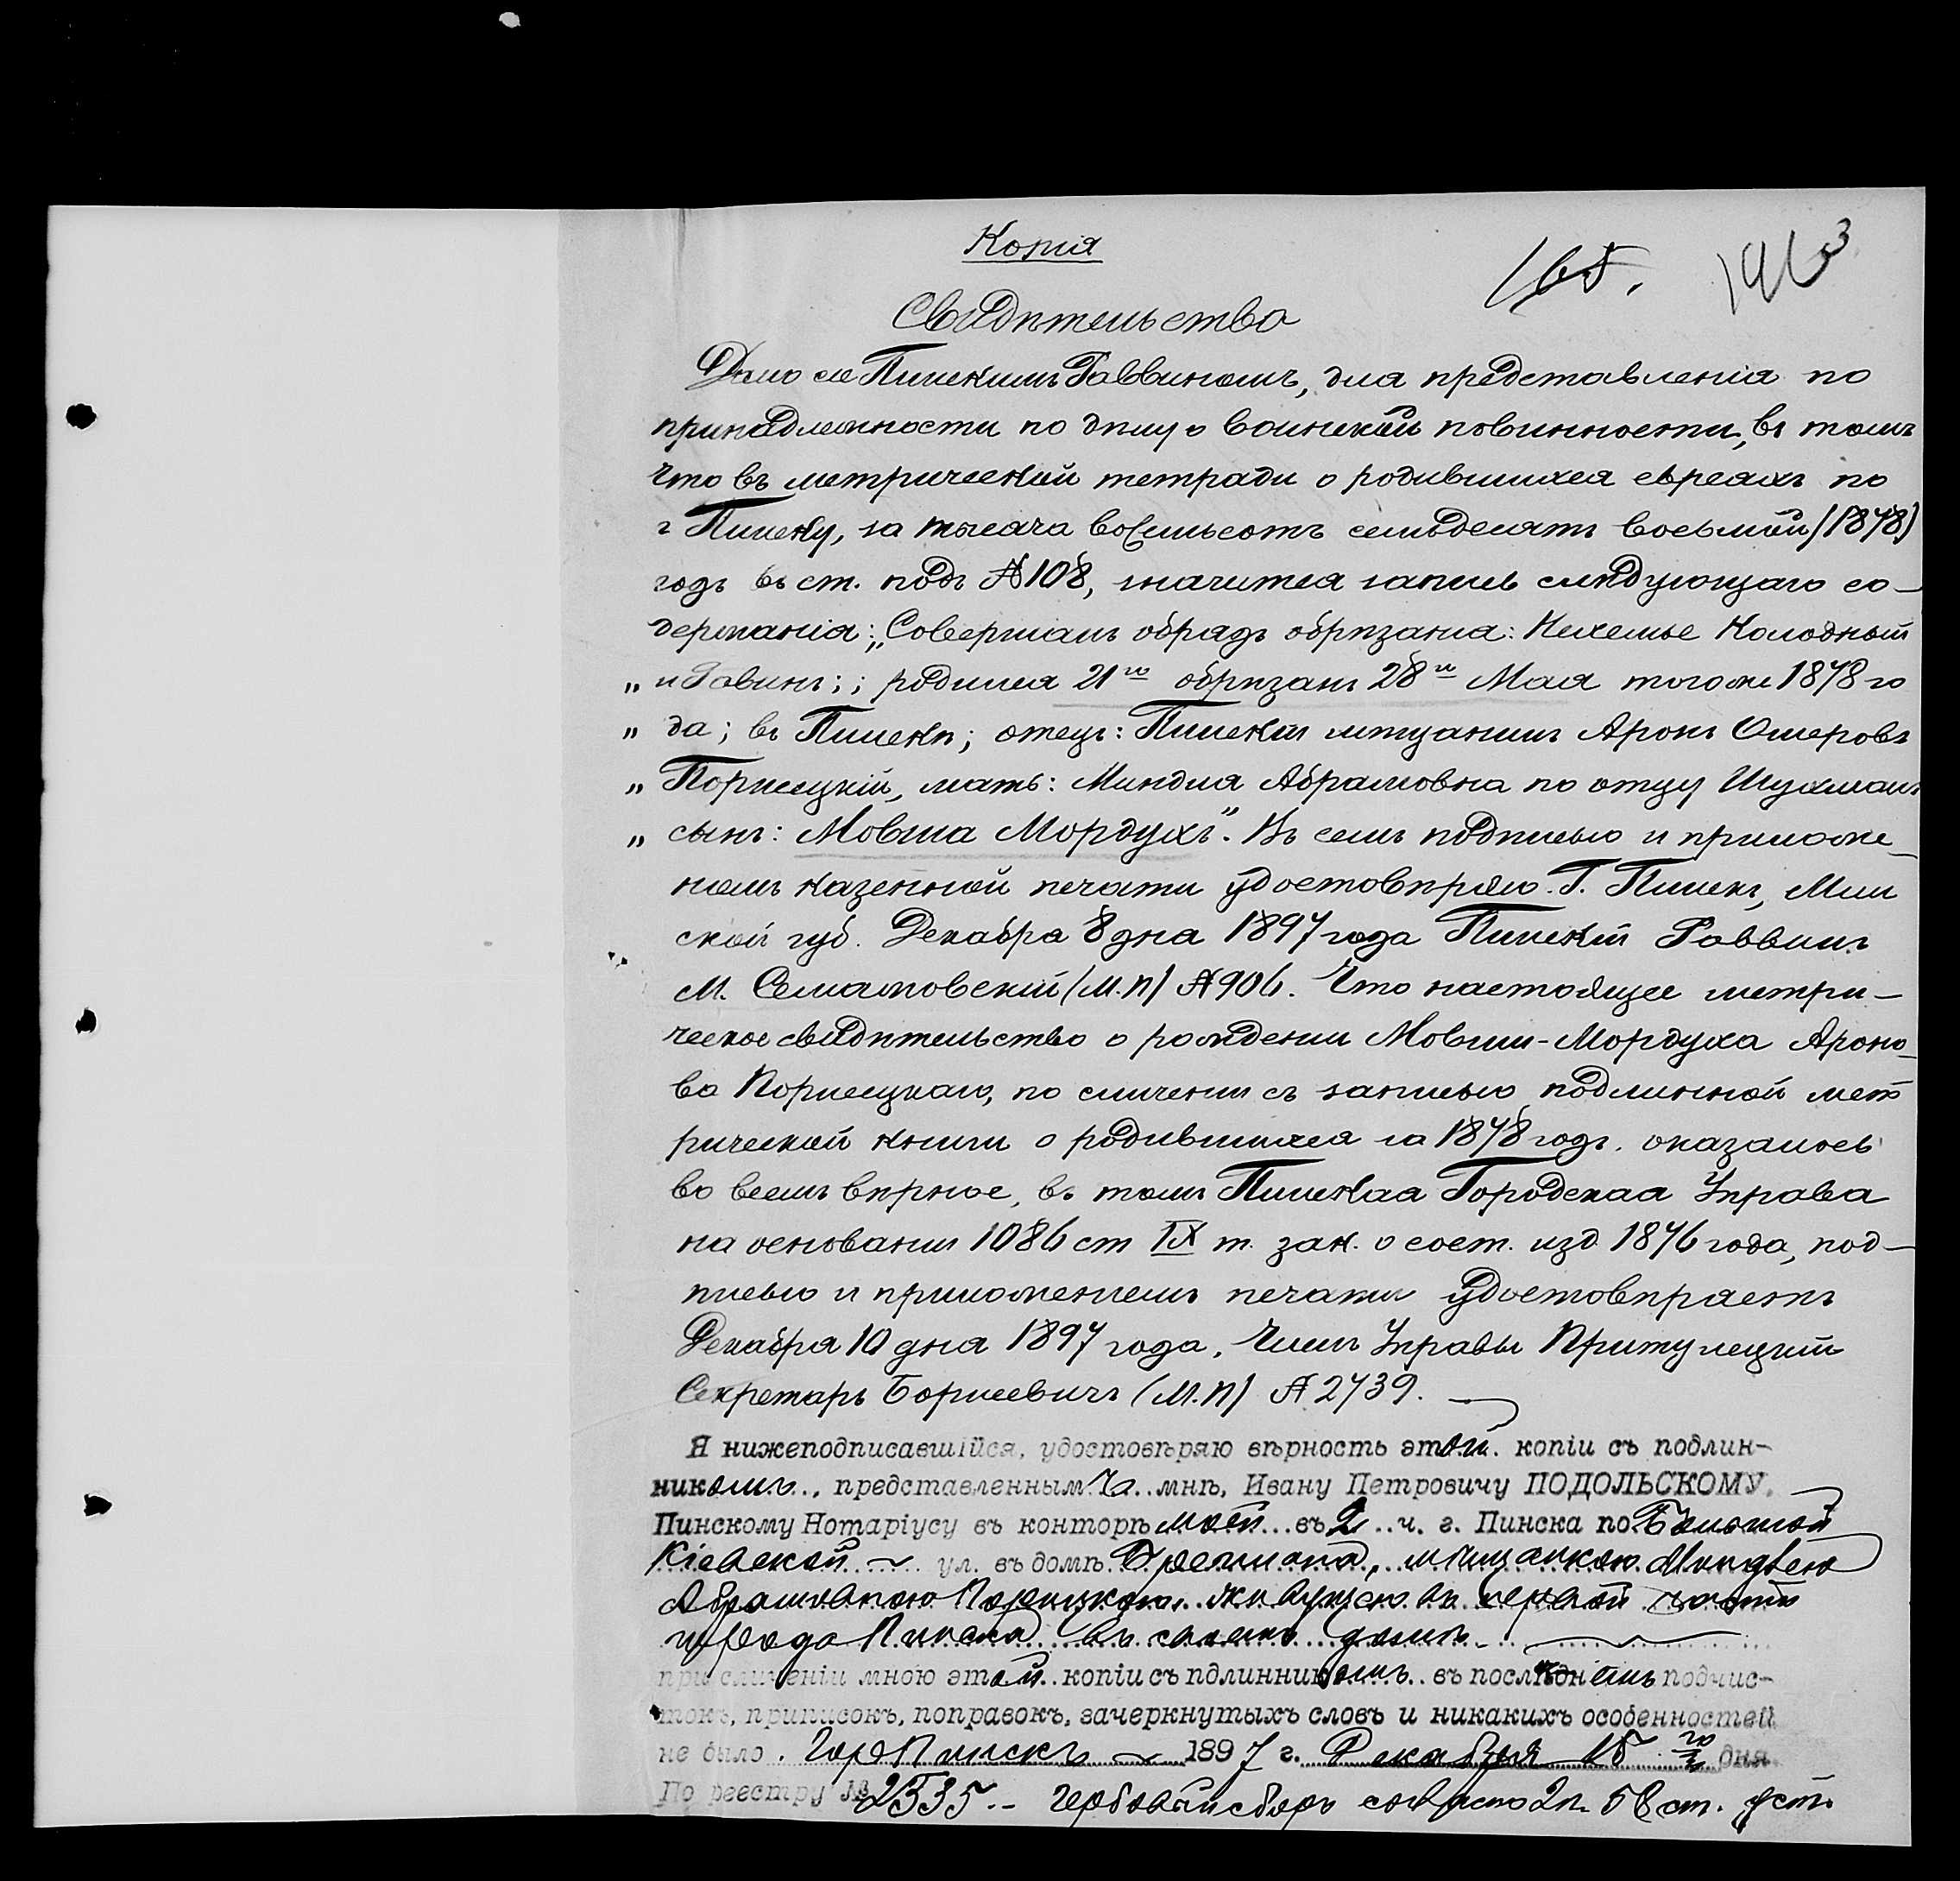 Копія
165. 
Свидѣтельство
Дано сіе Пинскимъ Раввиномъ, для представленія по
принадлежности по дѣлу о воинской повинности, въ томъ
что въ метрической тетради о родившихся евреяхъ по
г Пинску, за тысяча восемьсотъ семьдесятъ восьмой (1878)
годъ въ ст. подъ № 108, значится запись слѣдующаго со-
держанія: „Совершалъ обрядъ обрѣзанія: Нехемье Колодный
„ и Равинъ; ; родился 21го обрѣзанъ 28го Мая того же 1878 го
„ да; въ Пинскѣ; отецъ: Пинскій мѣщанинъ Аронъ Ошеровъ
„ Порисецкій, мать: Миндля Абрамовна по отцу Шухманъ
„ сынъ: Мовша Мордухъ". Въ семъ подписью и приложе-
ніемъ казенной печати удостовѣряю. Г. Пинскъ, Мин
ской губ. Декабря 8 дня 1897 года Пинскій Раввинъ
М. (М.П) № 906. Что настоящее метри-
ческое свидѣтельство о рожденіи Мовши-Мордуха Ароно-
ва Порисецкаго, по сличеніи съ записью подлинной мет
рической книги о родившихся за 1878 годъ. оказалось
во всемъ вѣрное, въ томъ Пинская Городская Управа
на основаніи 1086 ст IX т. зак. о сост. изд 1876 года, под-
писью и приложеніемъ печати удостовѣряетъ
Декабря 10 дня 1897 года. Членъ Управы
Секретарь Борисевичъ (М.П) № 2739.
Я нижеподписавшійся, удостовѣряю вѣрность этой. копіи съ подлин-
никомъ.., представленнымъ..мнѣ, Ивану Петровичу ПОДОЛЬСКОМУ.
Пинскому Нотаріусу въ конторѣ моей...въ 2..ч. г. Пинска по Большой
Кіевской ул. въ домѣ мѣщанкою Миндлею
Абрамовною Порисецкою, живущею въ первой части
города Пинска въ своемъ домѣ
при сличеніи мною этой..копіи съ пдлинникомъ..въ послѣднемъ подчис-
токъ, приписокъ, поправокъ, зачеркнутыхъ словъ и никакихъ особенностей
не было. Гор Пинскъ 1897 г. Декабря 15го дня.
По реестру № 2535.- Гербовый сборъ согласно 2 п. 58 ст. Уст.